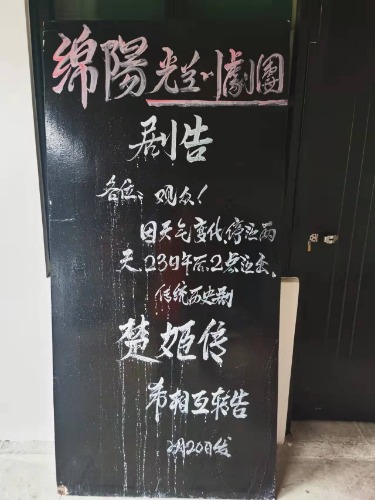 绵陽光兰川劇團
剧告
各位:观众!
因天气变化停演两
天.23日午后2点演出、
传统历史剧
楚姬传
希相互转告
2月20日发